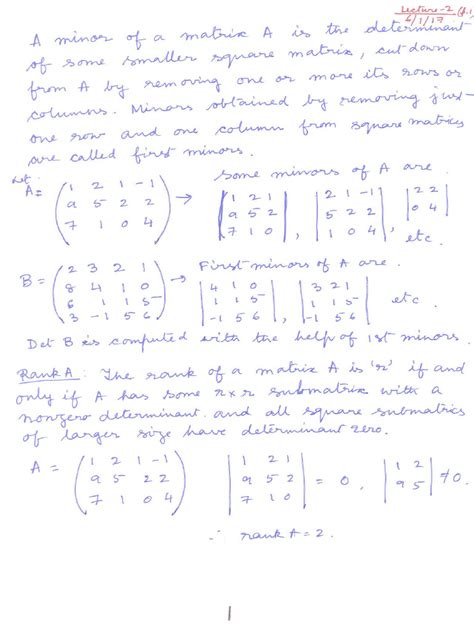 Lecture-2
6/1/17
A minor of a matrix A is the determinant
of some smaller square matrix, cut down
from A by removing one or more its rows or
columns. Minors obtained by removing just
one row and one column from square matrices
are called first minors.
Let A = ( 1 2 1 -1 ; 9 5 2 2 ; 7 1 0 4 ) → some minors of A are | 1 2 1 ; 9 5 2 ; 7 1 0 | , | 2 1 -1 ; 5 2 2 ; 1 0 4 | , | 2 2 ; 0 4 | etc.
B = ( 2 3 2 1 ; 8 4 1 0 ; 6 1 1 5 ; 3 -1 5 6 ) → First minors of A are. | 4 1 0 ; 1 1 5 ; -1 5 6 | , | 3 2 1 ; 1 1 5 ; -1 5 6 | etc.
Det B is computed with the help of 1st minors.
Rank A: The rank of a matrix A is 'r' if and
only if A has some r x r submatrix with a
nonzero determinant and all square submatrics
of larger size have determinant zero.
A = ( 1 2 1 -1 ; 9 5 2 2 ; 7 1 0 4 ) | 1 2 1 ; 9 5 2 ; 7 1 0 | = 0, | 1 2 ; 9 5 | ≠ 0.
∴ rank A = 2.
1